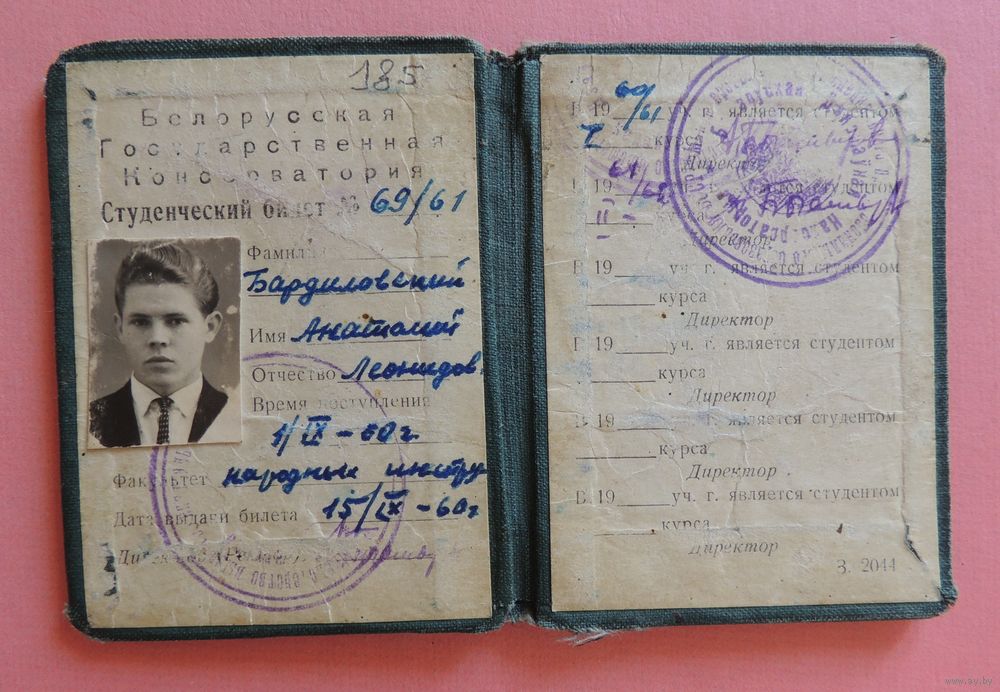 185
Белорусская
Государственная
Консерватория
Студенческий билет № 69/61
Фамилия
Бардиловский
Имя Анатолий
Отчество Леонидов.
Время поступления
1/IX – 60 г.
Факультет народных инстру
Дата выдачи билета 15/IX – 60 г
В 19 60/61 уч. г. является студентом
I курса
Директор
В 19 61/62 уч. г. является студентом
II – курса
Директор
В 19 уч. г. является студентом
курса
Директор
В 19 уч. г. является студентом
курса
Директор
В 19 уч. г. является студентом
курса
Директор
В 19 уч. г. является студентом
курса
Директор
З. 2044
www.ay.by